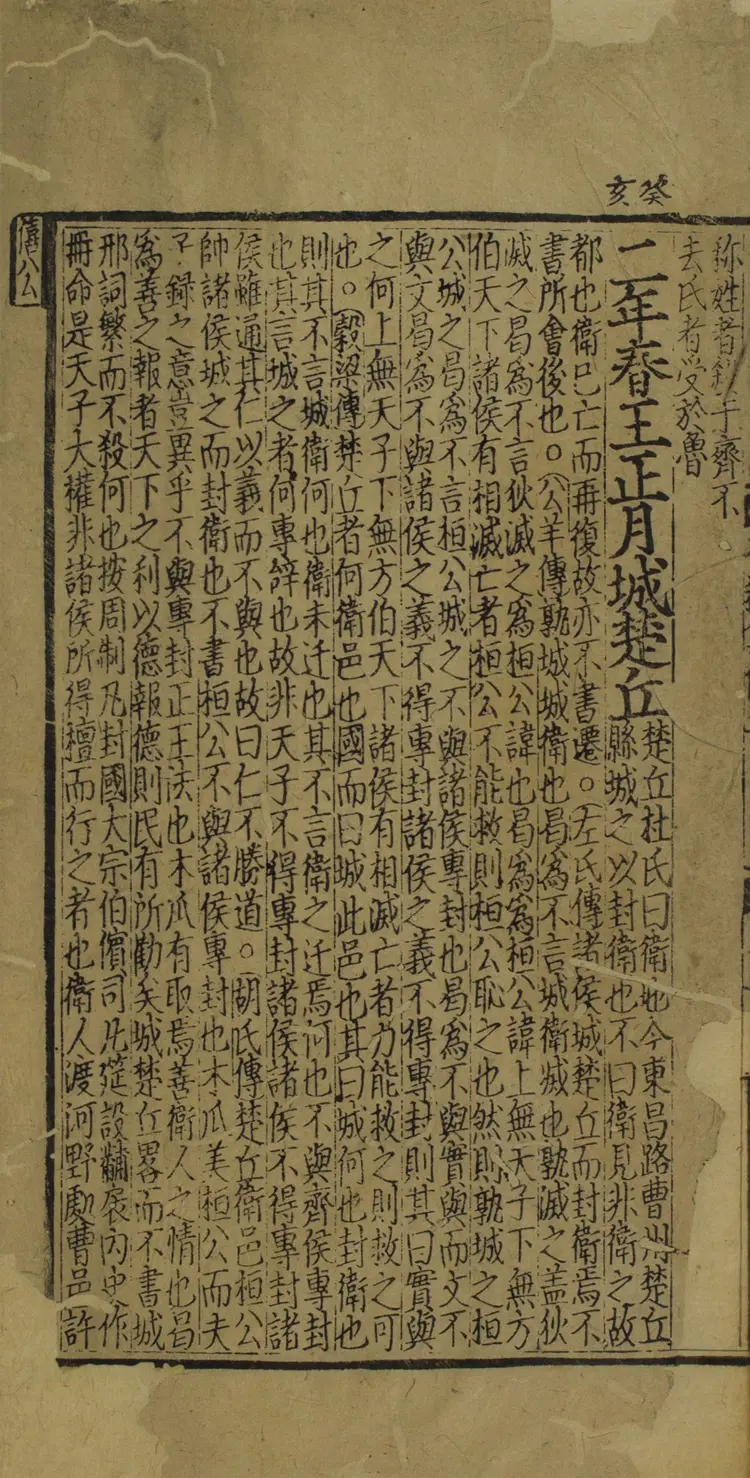 癸亥
称姓者于齊不
去氏者受於魯
二年春王正月城楚丘
楚丘杜氏曰衛地今東昌路曹州楚丘
縣城之以封衛也不曰衛見非衛之故
都也衛已亡而再復故亦不書遷○左氏傳諸侯城楚丘而封衛焉不
書所會後也○公羊傳孰城城衛也曷爲不言城衛滅也孰滅之盖狄
滅之曷爲不言狄滅之爲桓公諱也曷爲爲桓公諱上無天子下無方
伯天下諸侯有相滅亡者桓公不能救則桓公恥之也然則孰城之桓
公城之曷爲不言桓公城之不與諸侯專封也曷爲不與實與而文不
與文曷爲不與諸侯之義不得專封諸侯之義不得專封則其曰實與
之何上無天子下無方伯天下諸侯有相滅亡者力能救之則救之可
也○穀梁傳楚丘者何衛邑也國而曰城此邑也其曰城何也封衛也
則其不言城衛何也衛未迁也其不言衛之迁焉何也不與齊侯專封
也其言城之者何專辝也故非天子不得專封諸侯諸侯不得專封諸
侯雖通其仁以義而不與也故曰仁不勝道○胡氏傳楚丘衛邑桓公
帥諸侯城之而封衛也不書桓公不與諸侯專封也木瓜美桓公而夫
子録之意豈異乎不與專封正王法也木瓜有取焉善衛人之情也曷
爲善之報者天下之利以德報德則民有所勸矣城楚丘畧而不書城
邢詞繁而不殺何也按周制凡封國大宗伯儐司几筵設黼扆内史作
冊命是天子大權非諸侯所得擅而行之者也衛人渡河野處曹邑許
僖公